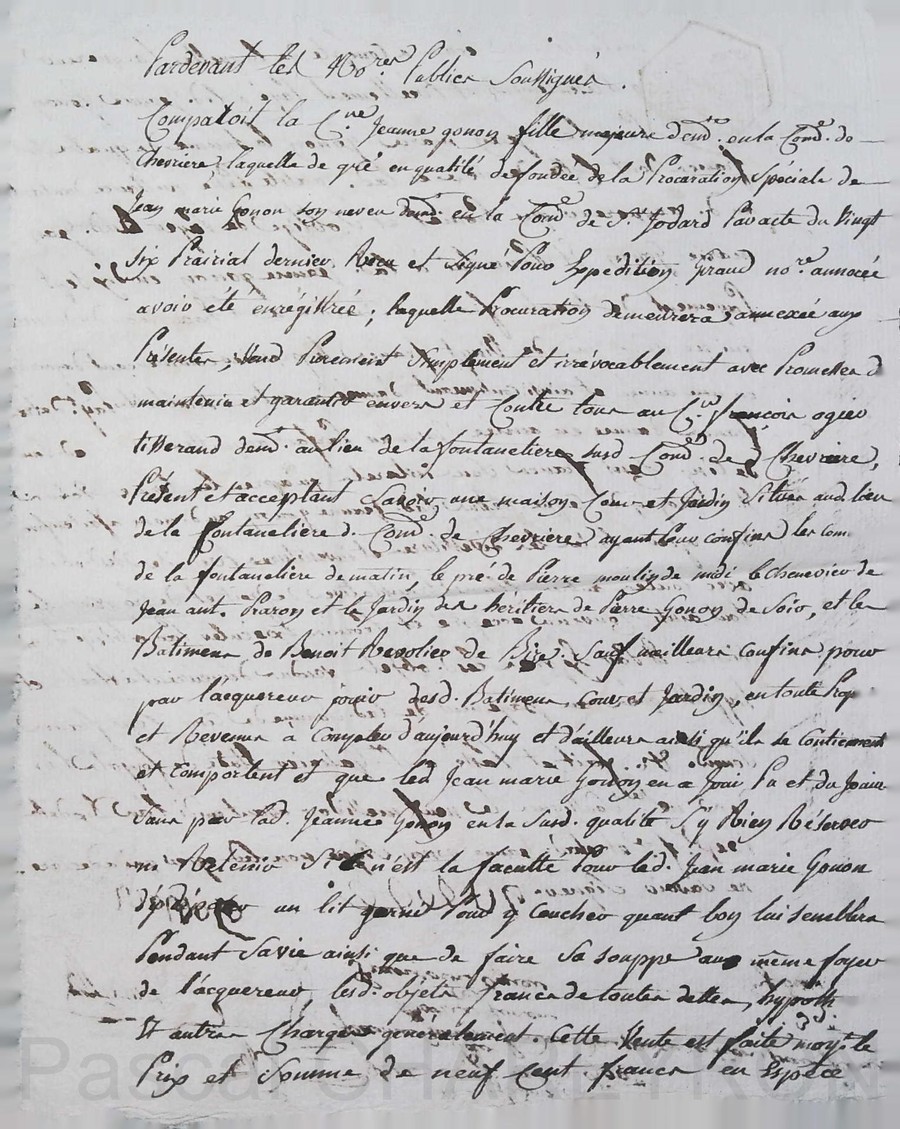 Pardevant les No.res Publics Soussignés.
Comparoit la C.ne Jeanne gonon fille majeure demt. en la Comé. de
Chevriere, laquelle de gré en qualité de fondée de la Procuration Spéciale de
Jean marie Gonon son neveu demt. en la Comé. de St. Jodard Par acte du Vingt
Six Prairial dernier Recu et Signé Pour Expedition Giraud no.re annocée
avoir été enrégistrée ; laquelle Procuration demeurera annexée aux
Présentes, Vend Purement Simplement et irrévocablement avec Promesses d
maintenir et garantir envers et Contre tous au C.en françois ogier
tisserand demt. au lieu de la fontaneliere susd. Comé. de Chevriere,
Présent et acceptant Savoir une maison Cour et Jardin Situés aud. lieu
de la fontaneliere d. Comé. de Chevriere ayant pour confins les com
de la fontaneliere de matin, le pré de Pierre moulin de midi le chenevier de
Jean ant. Piaron et le Jardin des héritiers de Pierre Gonon de Soir, et les
Batimens de Benoit Revolier de Bize. Sauf meilleurs confins pour
par l'acquereur jouir desd. Batimens, Cour et Jardin, en toute Prop
et Revenus a Compter d'aujourd'huy et d'ailleurs ainsi qu'ils se Contiennent
et comportent et que led. Jean marie Gonon en a Joui Pu et du Jouir
Sans par lad. Jeanne Gonon en la Susd. qualité S'y Rien Réserver
ni Retenir Si ce n'est la faculté Pour led. Jean marie Gonon
un lit garni Pour y Coucher quant bon lui semblera
Pendant Sa vie ainsi que de faire Sa souppe au même foyer
de l'acquereur, lesd. objets francs de toutes dettes, hypoth.
Et autres Charges generalement. Cette Vente est faite moyt. le
Prix et Somme de neuf Cent francs en Espece
Pascal CHARETRON